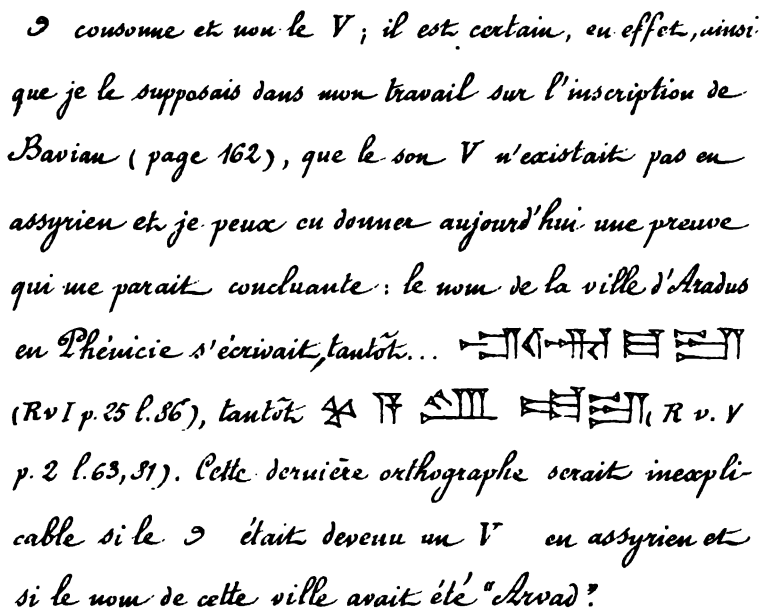 و consonne et non le V; il est certain, en effet, ainsi
que je le supposais dans mon travail sur l'inscription de
Bavian (page 162), que le son V n'existait pas en
assyrien et je peux en donner aujourd'hui une preuve
qui me parait concluante : le nom de la ville d'Aradus
en Phénicie s'écrivait, tantôt...
(R v I p. 25 l. 86), tantôt (R v. V
p. 2 l. 63, 81). Cette dernière orthographe serait inexpli-
cable si le و était devenu un V en assyrien et
si le nom de cette ville avait été "Arvad".